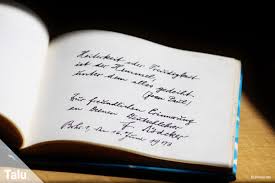 Heiterkeit oder Freudigkeit
ist der Himmel,
unter dem alles gedeiht.
(Jean Paul)
Zur freundlichen Erinnerung
an Deinen
F. Redeker
den 16.
Talu